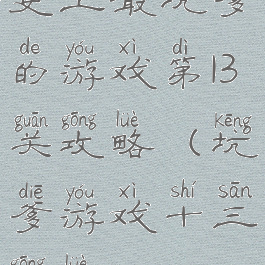 de yóu xì dì
的游戏第13
guān gōng lüè kēng
关攻略（坑
diē yóu xì shí sān
爹游戏十三
gōng lüè